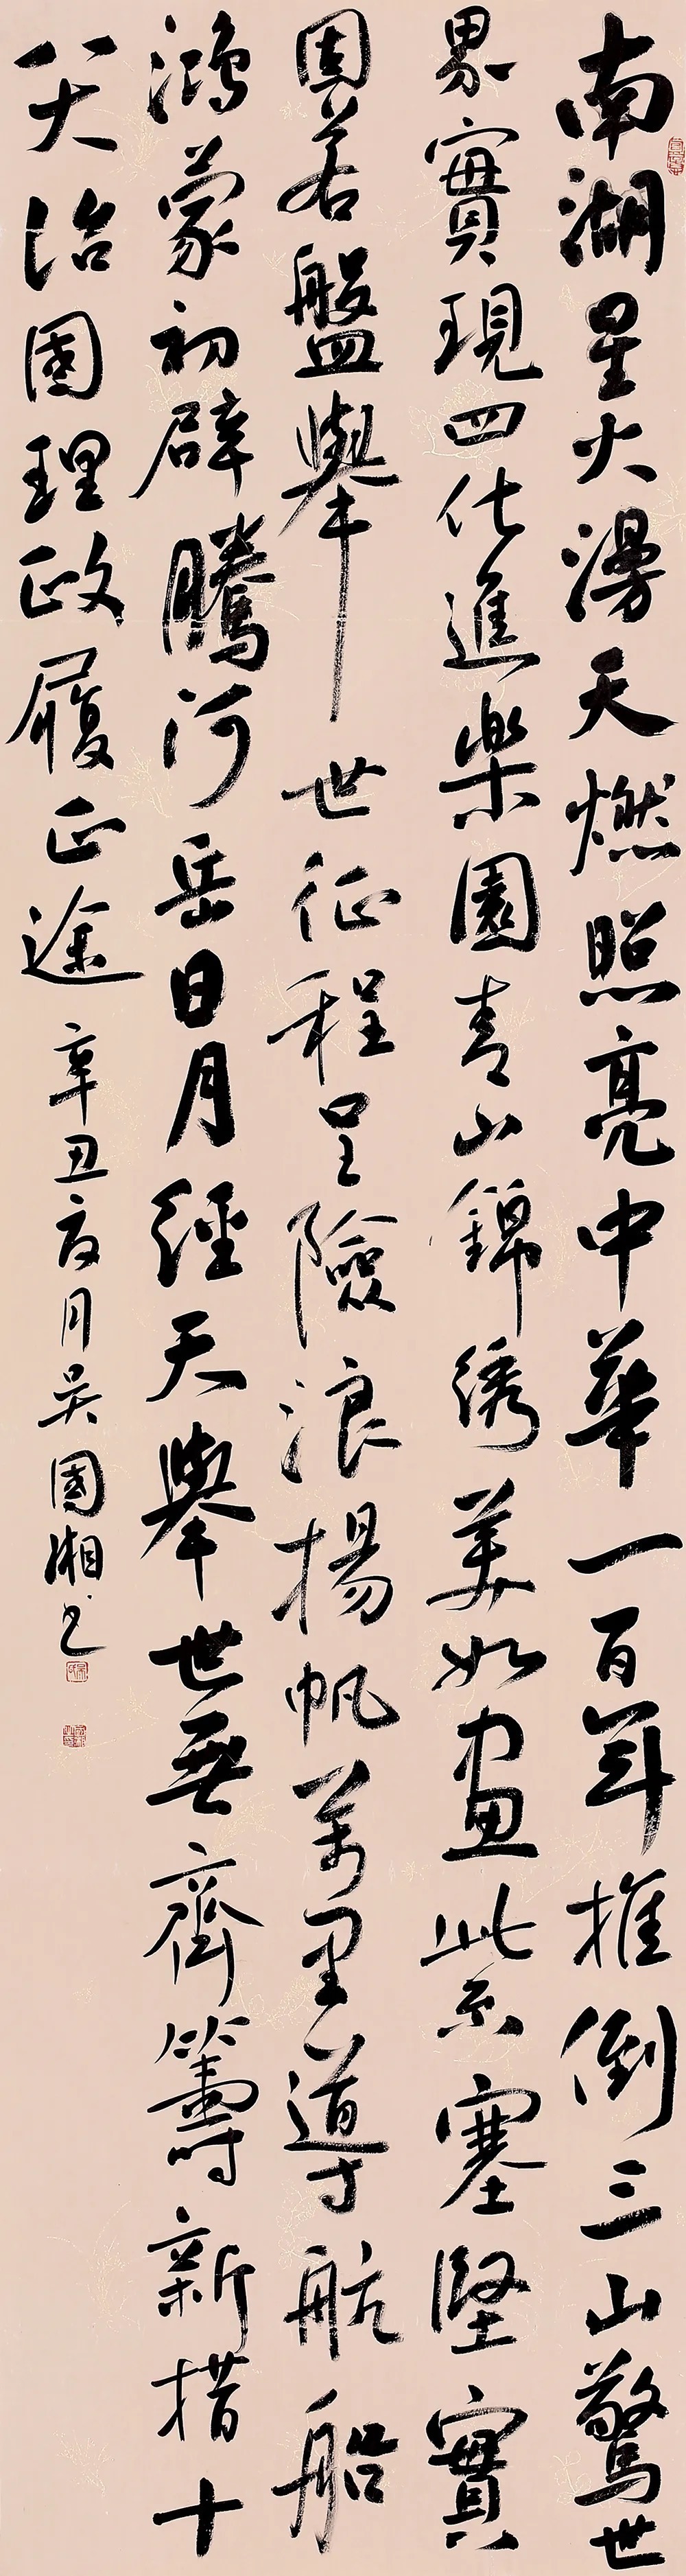 南湖星火漫天燃照亮中華一百年推倒三山驚世
界實現四化進樂園青山錦绣美如畫紫塞堅實
固若盤舉世征程呈險浪揚帆萬里導航船
鴻蒙初辟騰河岳日月經天舉世無齊籌新措十
八大治國理政履正途
辛丑夏月吴國湘书